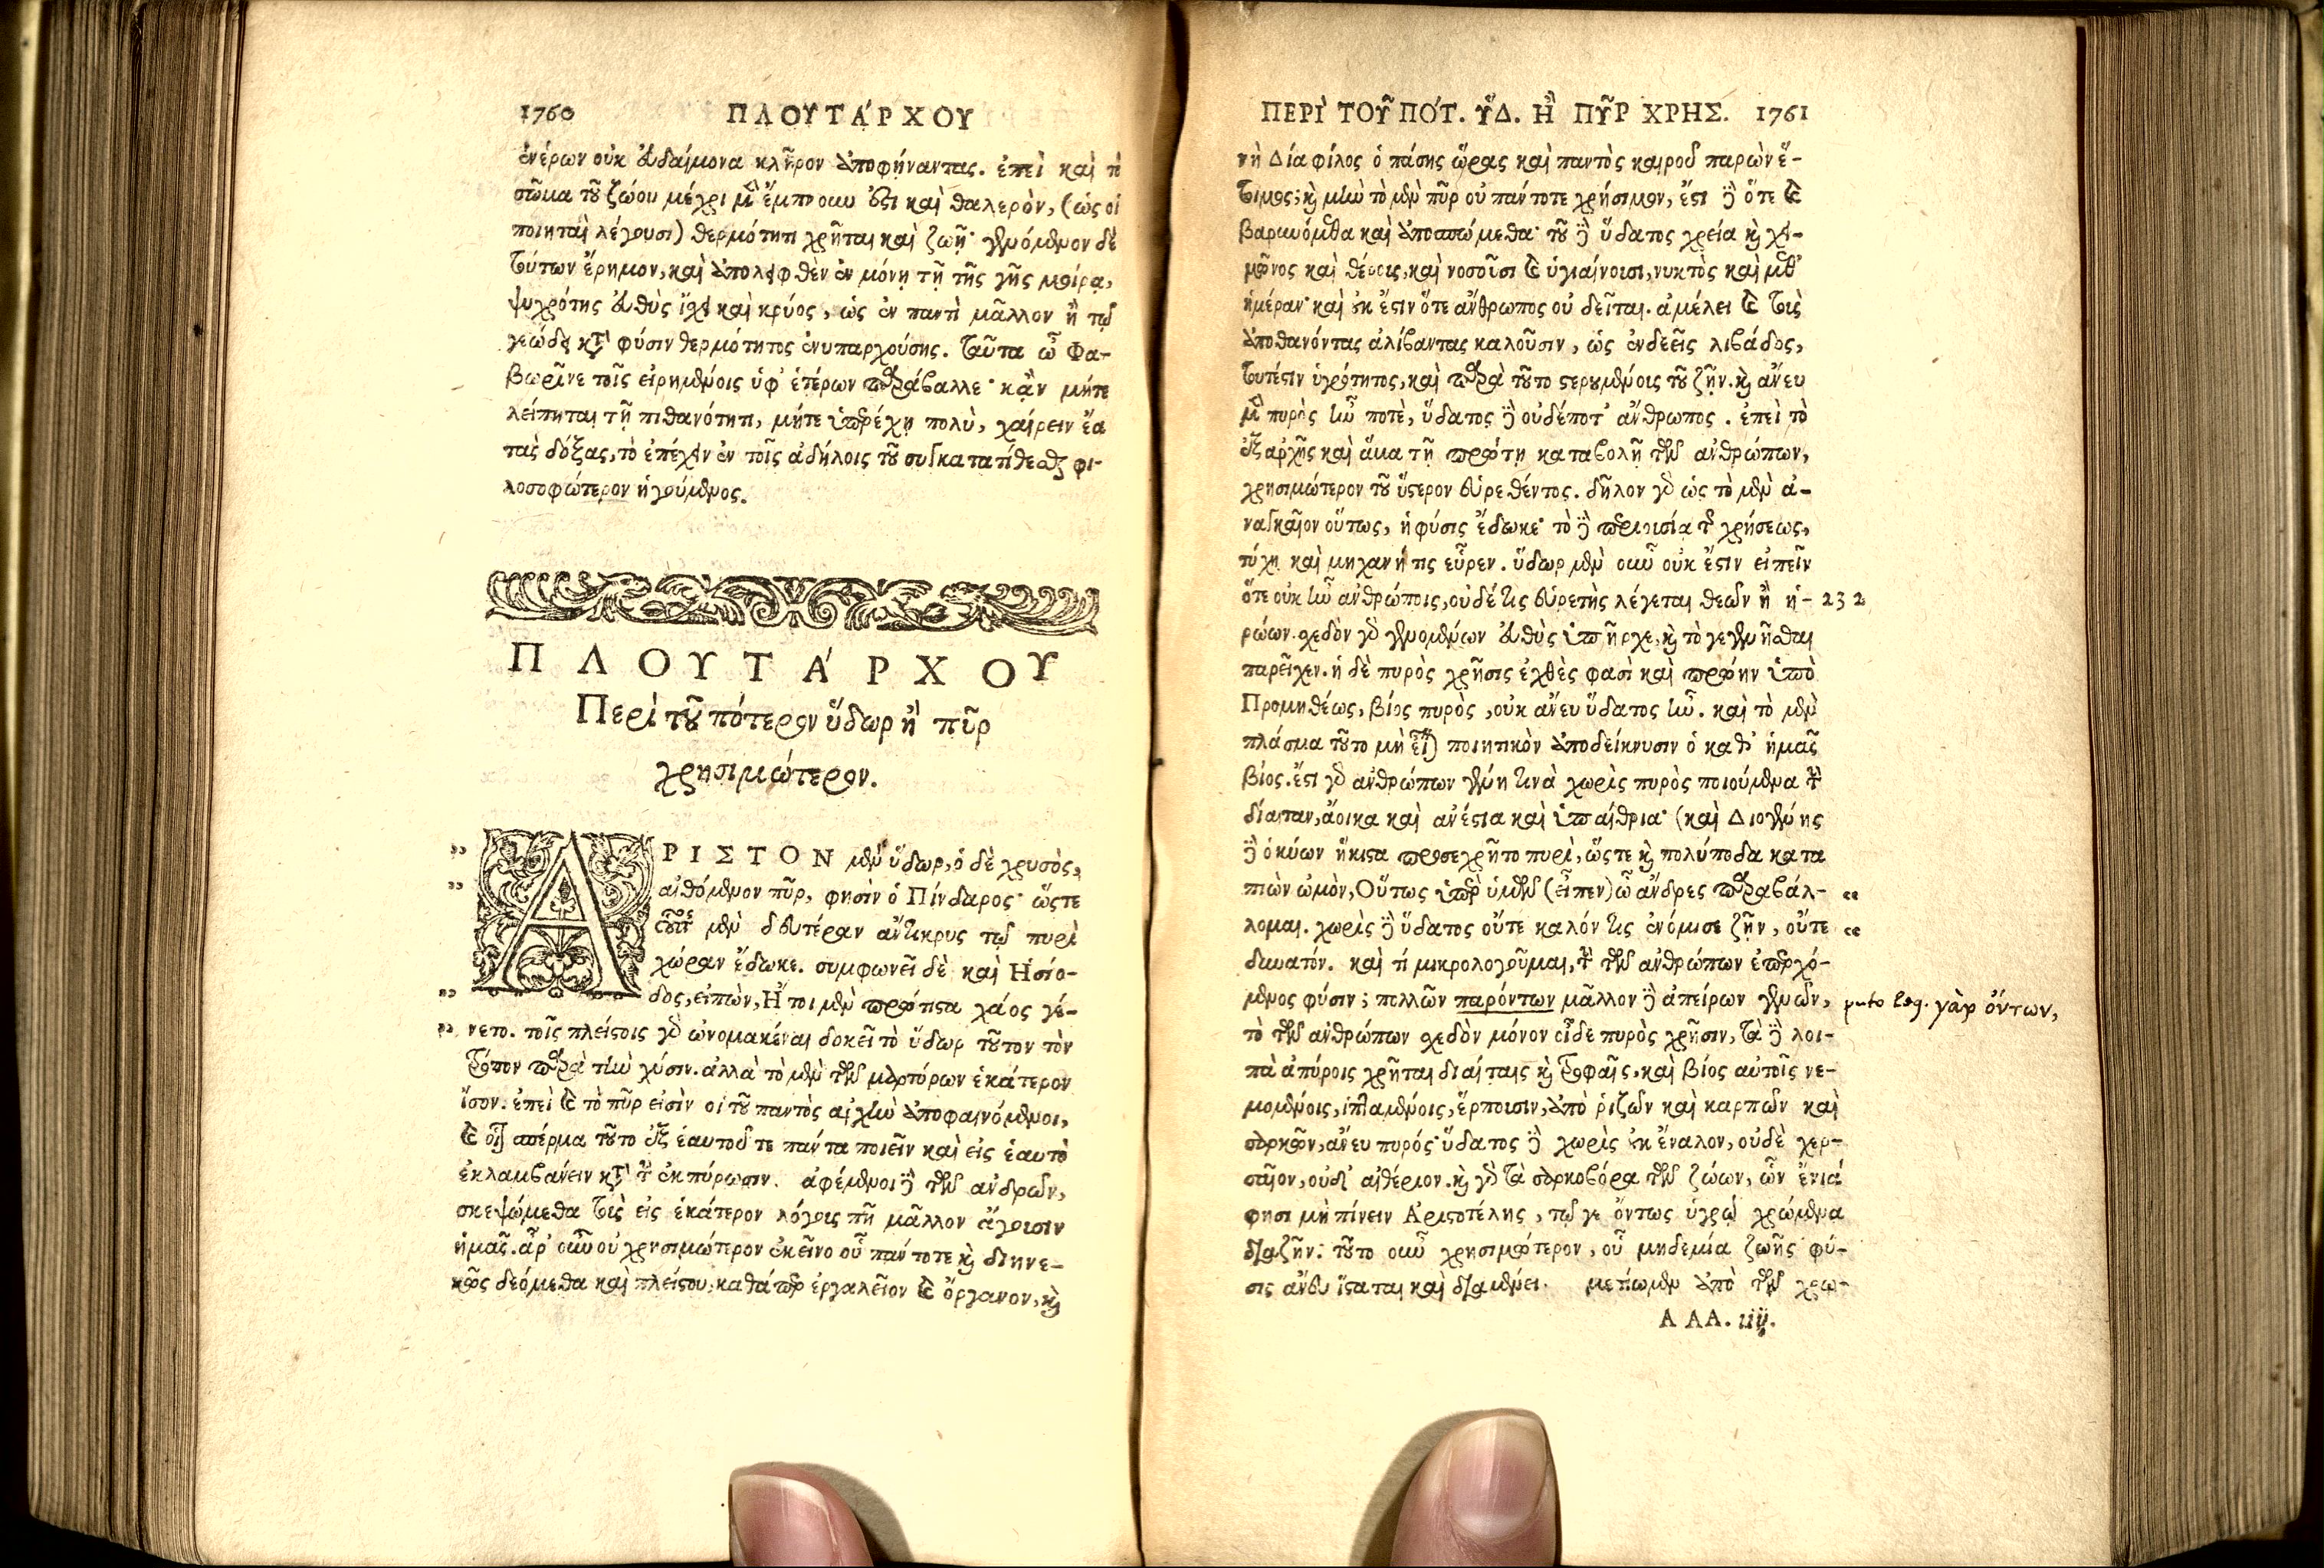 1760 ΠΛΟΥΤΆΡΧΟΥ
ἐνέρων οὐκ εὐδαίμονα κλῆρον ἀποφήναντας. ἐπεὶ καὶ τὸ
σῶμα τοῦ ζώου μέχρι μὲν ἔμπνουν ἐστι καὶ θαλερὸν, (ὡς οἱ
ποιηταὶ λέγουσι) θερμότητι χρῆται καὶ ζωῇ· γενόμενον δὲ
τούτων ἔρημον, καὶ ἀπολειφθὲν ἐν μόνῃ τῇ τῆς γῆς μοίρᾳ,
ψυχρότης εὐθὺς ἴσχει καὶ κρύος, ὡς ἐν παντὶ μᾶλλον ἢ τῷ
γεώδει κατὰ φύσιν θερμότητος ἐνυπαρχούσης. ταῦτα ὦ Φα-
βωρῖνε τοῖς εἰρημένοις ὑφ' ἑτέρων παράβαλλε· κἂν μήτε
λείπηται τῇ πιθανότητι, μήτε ὑπερέχῃ πολὺ, χαίρειν ἔα
τὰς δόξας, τὸ ἐπέχειν ἐν τοῖς ἀδήλοις τοῦ συγκατατίθεσθαι φι-
λοσοφώτερον ἡγούμενος.
ΠΛΟΥΤΆΡΧΟΥ
Περὶ τοῦ πότερον ὕδωρ ἢ πῦρ
χρησιμώτερον.
„ ΑΡΙΣΤΟΝ μὲν ὕδωρ, ὁ δὲ χρυσὸς,
„ αἰθόμενον πῦρ, φησὶν ὁ Πίνδαρος· ὥστε
οὗτος μὲν δευτέραν ἄντικρυς τῷ πυρὶ
χώραν ἔδωκε. συμφωνεῖ δὲ καὶ Ἡσίο-
„ δος, εἰπὼν, Ἤτοι μὲν πρώτιστα χάος γέ-
„ νετο. τοῖς πλείστοις γὰρ ὠνομακέναι δοκεῖ τὸ ὕδωρ τοῦτον τὸν
τρόπον παρὰ τὴν χύσιν. ἀλλὰ τὸ μὲν τῶν μαρτύρων ἑκάτερον
ἴσον. ἐπεὶ καὶ τὸ πῦρ εἰσὶν οἱ τοῦ παντὸς ἀρχὴν ἀποφαινόμενοι,
καὶ οἷον σπέρμα τοῦτο ἐξ ἑαυτοῦ τε πάντα ποιεῖν καὶ εἰς ἑαυτὸ
ἐκλαμβάνειν κατὰ τὴν ἐκπύρωσιν. ἀφέμενοι δὲ τῶν ἀνδρῶν,
σκεψώμεθα τοὺς εἰς ἑκάτερον λόγους πῆ μᾶλλον ἄγουσιν
ἡμᾶς. ἆρ' οὖν οὐ χρησιμώτερον ἐκεῖνο οὗ πάντοτε καὶ διηνε-
κῶς δεόμεθα καὶ πλείστου, καθάπερ ἐργαλεῖον καὶ ὄργανον, καὶ
ΠΕΡῚ ΤΟΥ͂ ΠΌΤ. ὝΔ. Ἢ ΠΥ͂Ρ ΧΡΗΣ. 1761
νὴ Δία φίλος ὁ πάσης ὥρας καὶ παντὸς καιροῦ παρὼν ἕ-
τοιμος; καὶ μὴν τὸ μὲν πῦρ οὐ πάντοτε χρήσιμον, ἔστι δὲ ὅτε καὶ
βαρυνόμεθα καὶ ἀποσπώμεθα· τοῦ δὲ ὕδατος χρεία καὶ χει-
μῶνος καὶ θέρους, καὶ νοσοῦσι καὶ ὑγιαίνουσι, νυκτὸς καὶ μεθ'
ἡμέραν· καὶ οὐκ ἔστιν ὅτε ἄνθρωπος οὐ δεῖται. ἀμέλει καὶ τοὺς
ἀποθανόντας ἀλίβαντας καλοῦσιν, ὡς ἐνδεεῖς λιβάδος,
τουτέστιν ὑγρότητος, καὶ παρὰ τοῦτο στερουμένους τοῦ ζῆν. καὶ ἄνευ
μὲν πυρὸς ἦν ποτὲ, ὕδατος δὲ οὐδέποτ' ἄνθρωπος. ἐπεὶ τὸ
ἐξ ἀρχῆς καὶ ἅμα τῇ πρώτῃ καταβολῇ τῶν ἀνθρώπων,
χρησιμώτερον τοῦ ὕστερον εὑρεθέντος. δῆλον γὰρ ὡς τὸ μὲν ἀ-
ναγκαῖον οὕτως, ἡ φύσις ἔδωκε· τὸ δὲ περιουσία τῆς χρήσεως,
τύχη καὶ μηχανή τις εὗρεν. ὕδωρ μὲν οὖν οὐκ ἔστιν εἰπεῖν
ὅτε οὐκ ἦν ἀνθρώποις, οὐδέ τις εὑρετὴς λέγεται θεῶν ἢ ἡ- 232
ρώων. σχεδὸν γὰρ γενομένων εὐθὺς ὑπῆρχε, καὶ τὸ γεγενῆσθαι
παρεῖχεν. ἡ δὲ πυρὸς χρῆσις ἐχθὲς φασὶ καὶ πρώην ὑπὸ
Προμηθέως, βίος πυρὸς, οὐκ ἄνευ ὕδατος ἦν. καὶ τὸ μὲν
πλάσμα τοῦτο μὴ εἶναι ποιητικὸν ἀποδείκνυσιν ὁ καθ' ἡμᾶς
βίος. ἔστι γὰρ ἀνθρώπων γένη τινὰ χωρὶς πυρὸς ποιούμενα τὴν
δίαιταν, ἄοικα καὶ ἀνέστια καὶ ὑπαίθρια· (καὶ Διογένης
δὲ ὁ κύων ἥκιστα προσεχρῆτο πυρὶ, ὥστε καὶ πολύποδα κατα
πιὼν ὠμὸν, Οὕτως ὑπὲρ ὑμῶν (εἶπεν) ὦ ἄνδρες παραβάλ- “
λομαι. χωρὶς δὲ ὕδατος οὔτε καλόν τις ἐνόμισε ζῆν, οὔτε “
δυνατόν. καὶ τί μικρολογοῦμαι, τὴν τῶν ἀνθρώπων ἐπερχό-
μενος φύσιν; πολλῶν παρόντων μᾶλλον δὲ ἀπείρων γενῶν, puto leg. γὰρ ὄντων,
τὸ τῶν ἀνθρώπων σχεδὸν μόνον οἶδε πυρὸς χρῆσιν, τὰ δὲ λοι-
πὰ ἀπύροις χρῆται διαίταις καὶ τροφαῖς, καὶ βίος αὐτοῖς νε-
μομένοις, ἱπταμένοις, ἕρπουσιν, ἀπὸ ῥιζῶν καὶ καρπῶν καὶ
σαρκῶν, ἄνευ πυρός· ὕδατος δὲ χωρὶς οὐκ ἔναλον, οὐδὲ χερ-
σαῖον, οὐδ' αἰθέριον. καὶ γὰρ τὰ σαρκοβόρα τῶν ζώων, ὧν ἔνιά
φησι μὴ πίνειν Ἀριστοτέλης, τῷ γε ὄντως ὑγρῷ χρώμενα
διαζῆν. τοῦτο οὖν χρησιμώτερον, οὗ μηδεμία ζωῆς φύ-
σις ἄνευ ἵσταται καὶ διαμένει. μετίωμεν ἀπὸ τῶν χρω-
AAA. iiij.